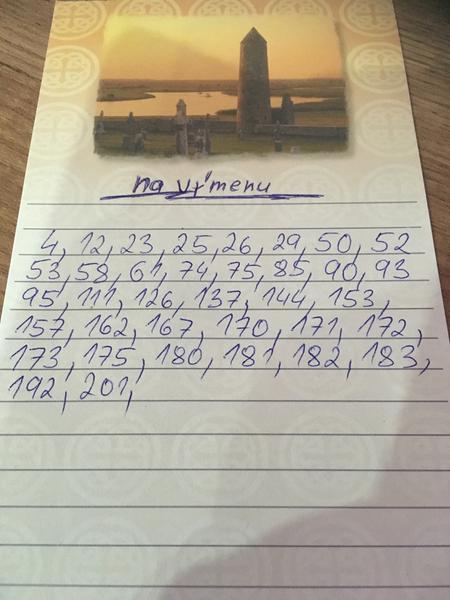 na výmenu
4, 12, 23, 25, 26, 29, 50, 52
53, 58, 61, 74, 75, 85, 90, 93
95, 111, 126, 137, 144, 153,
157, 162, 167, 170, 171, 172,
173, 175, 180, 181, 182, 183,
192, 201,